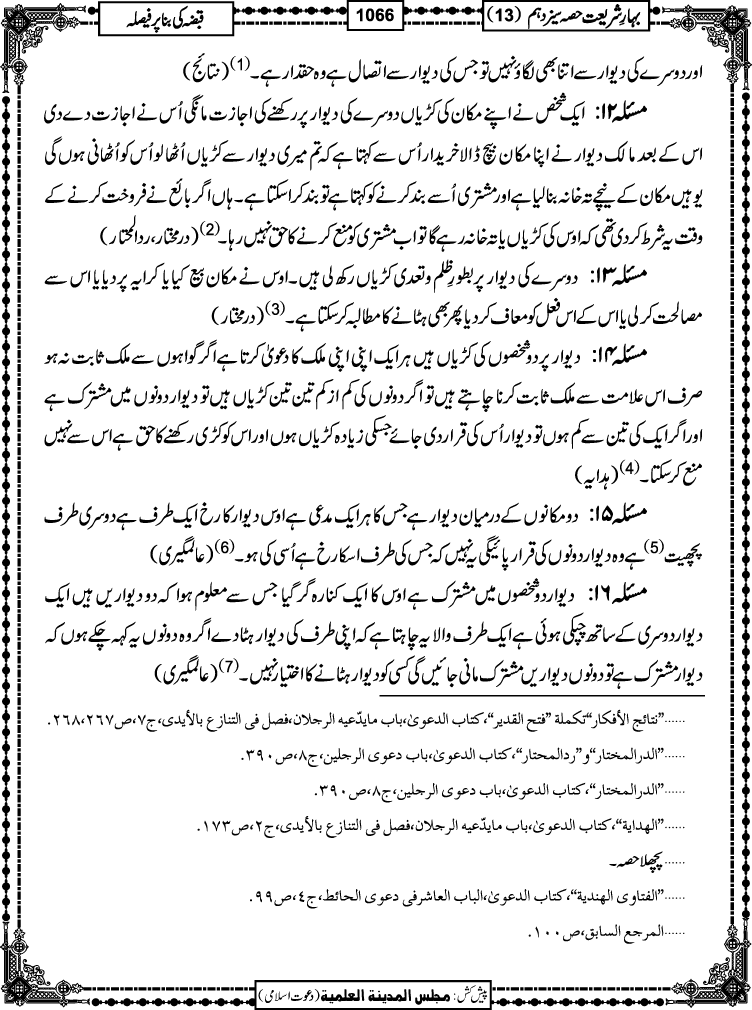 بہارِ شریعت حصہ سیزدہم (13)
1066
قبضہ کی بنا پر فیصلہ
اور دوسرے کی دیوار سے اتنا بھی لگاؤ نہیں تو جس کی دیوار سے اتصال ہے وہ حقدار ہے۔(1) (نتائج)
مسئلہ ۱۲: ایک شخص نے اپنے مکان کی کڑیاں دوسرے کی دیوار پر رکھنے کی اجازت مانگی اُس نے اجازت دے دی
اس کے بعد مالک دیوار نے اپنا مکان بیچ ڈالا خریدار اُس سے کہتا ہے کہ تم میری دیوار سے کڑیاں اُٹھا لو اُس کو اُٹھانی ہوں گی
یوہیں مکان کے نیچے تہ خانہ بنا لیا ہے اور مشتری اُسے بند کرنے کو کہتا ہے تو بند کرا سکتا ہے۔ ہاں اگر بائع نے فروخت کرنے کے
وقت یہ شرط کر دی تھی کہ اوس کی کڑیاں یا تہ خانہ رہے گا تو اب مشتری کو منع کرنے کا حق نہیں رہا۔(2) (درمختار، ردالمحتار)
مسئلہ ۱۳: دوسرے کی دیوار پر بطورِ ظلم و تعدی کڑیاں رکھ لی ہیں۔ اوس نے مکان بیع کیا یا کرایہ پر دیا یا اس سے
مصالحت کر لی یا اس کے اس فعل کو معاف کر دیا پھر بھی ہٹانے کا مطالبہ کر سکتا ہے۔(3) (درمختار)
مسئلہ ۱۴: دیوار پر دو شخصوں کی کڑیاں ہیں ہر ایک اپنی اپنی ملک کا دعویٰ کرتا ہے اگر گواہوں سے ملک ثابت نہ ہو
صرف اس علامت سے ملک ثابت کرنا چاہتے ہیں تو اگر دونوں کی کم از کم تین تین کڑیاں ہیں تو دیوار دونوں میں مشترک ہے
اور اگر ایک کی تین سے کم ہوں تو دیوار اُس کی قرار دی جائے جسکی زیادہ کڑیاں ہوں اور اس کو کڑی رکھنے کا حق ہے اس سے نہیں
منع کر سکتا۔(4) (ہدایہ)
مسئلہ ۱۵: دو مکانوں کے درمیان دیوار ہے جس کا ہر ایک مدعی ہے اوس دیوار کا رخ ایک طرف ہے دوسری طرف
پچھیت(5) ہے وہ دیوار دونوں کی قرار پائیگی یہ نہیں کہ جس کی طرف اسکا رخ ہے اُسی کی ہو۔(6) (عالمگیری)
مسئلہ ۱۶: دیوار دو شخصوں میں مشترک ہے اوس کا ایک کنارہ گر گیا جس سے معلوم ہوا کہ دو دیواریں ہیں ایک
دیوار دوسری کے ساتھ چپکی ہوئی ہے ایک طرف والا یہ چاہتا ہے کہ اپنی طرف کی دیوار ہٹا دے اگر وہ دونوں یہ کہہ چکے ہوں کہ
دیوار مشترک ہے تو دونوں دیواریں مشترک مانی جائیں گی کسی کو دیوار ہٹانے کا اختیار نہیں۔(7) (عالمگیری)
......”نتائج الأفكار“ تكملة ”فتح القدير“، كتاب الدعویٰ، باب مايدّعيه الرجلان، فصل فى التنازع بالأيدى، ج۷، ص۲۶۷،۲۶۸.
......”الدرالمختار“ و ”ردالمحتار“، كتاب الدعویٰ، باب دعوى الرجلين، ج۸، ص۳۹۰.
......”الدرالمختار“، كتاب الدعویٰ، باب دعوى الرجلين، ج۸، ص۳۹۰.
......”الهداية“، كتاب الدعویٰ، باب مايدّعيه الرجلان، فصل فى التنازع بالأيدى، ج۲، ص۱۷۳.
...... پچھلا حصہ۔
......”الفتاوى الهندية“، كتاب الدعویٰ، الباب العاشر فى دعوى الحائط، ج٤، ص۹۹.
......المرجع السابق، ص۱۰۰.
پیش کش: مجلس المدینۃ العلمیۃ (دعوتِ اسلامی)